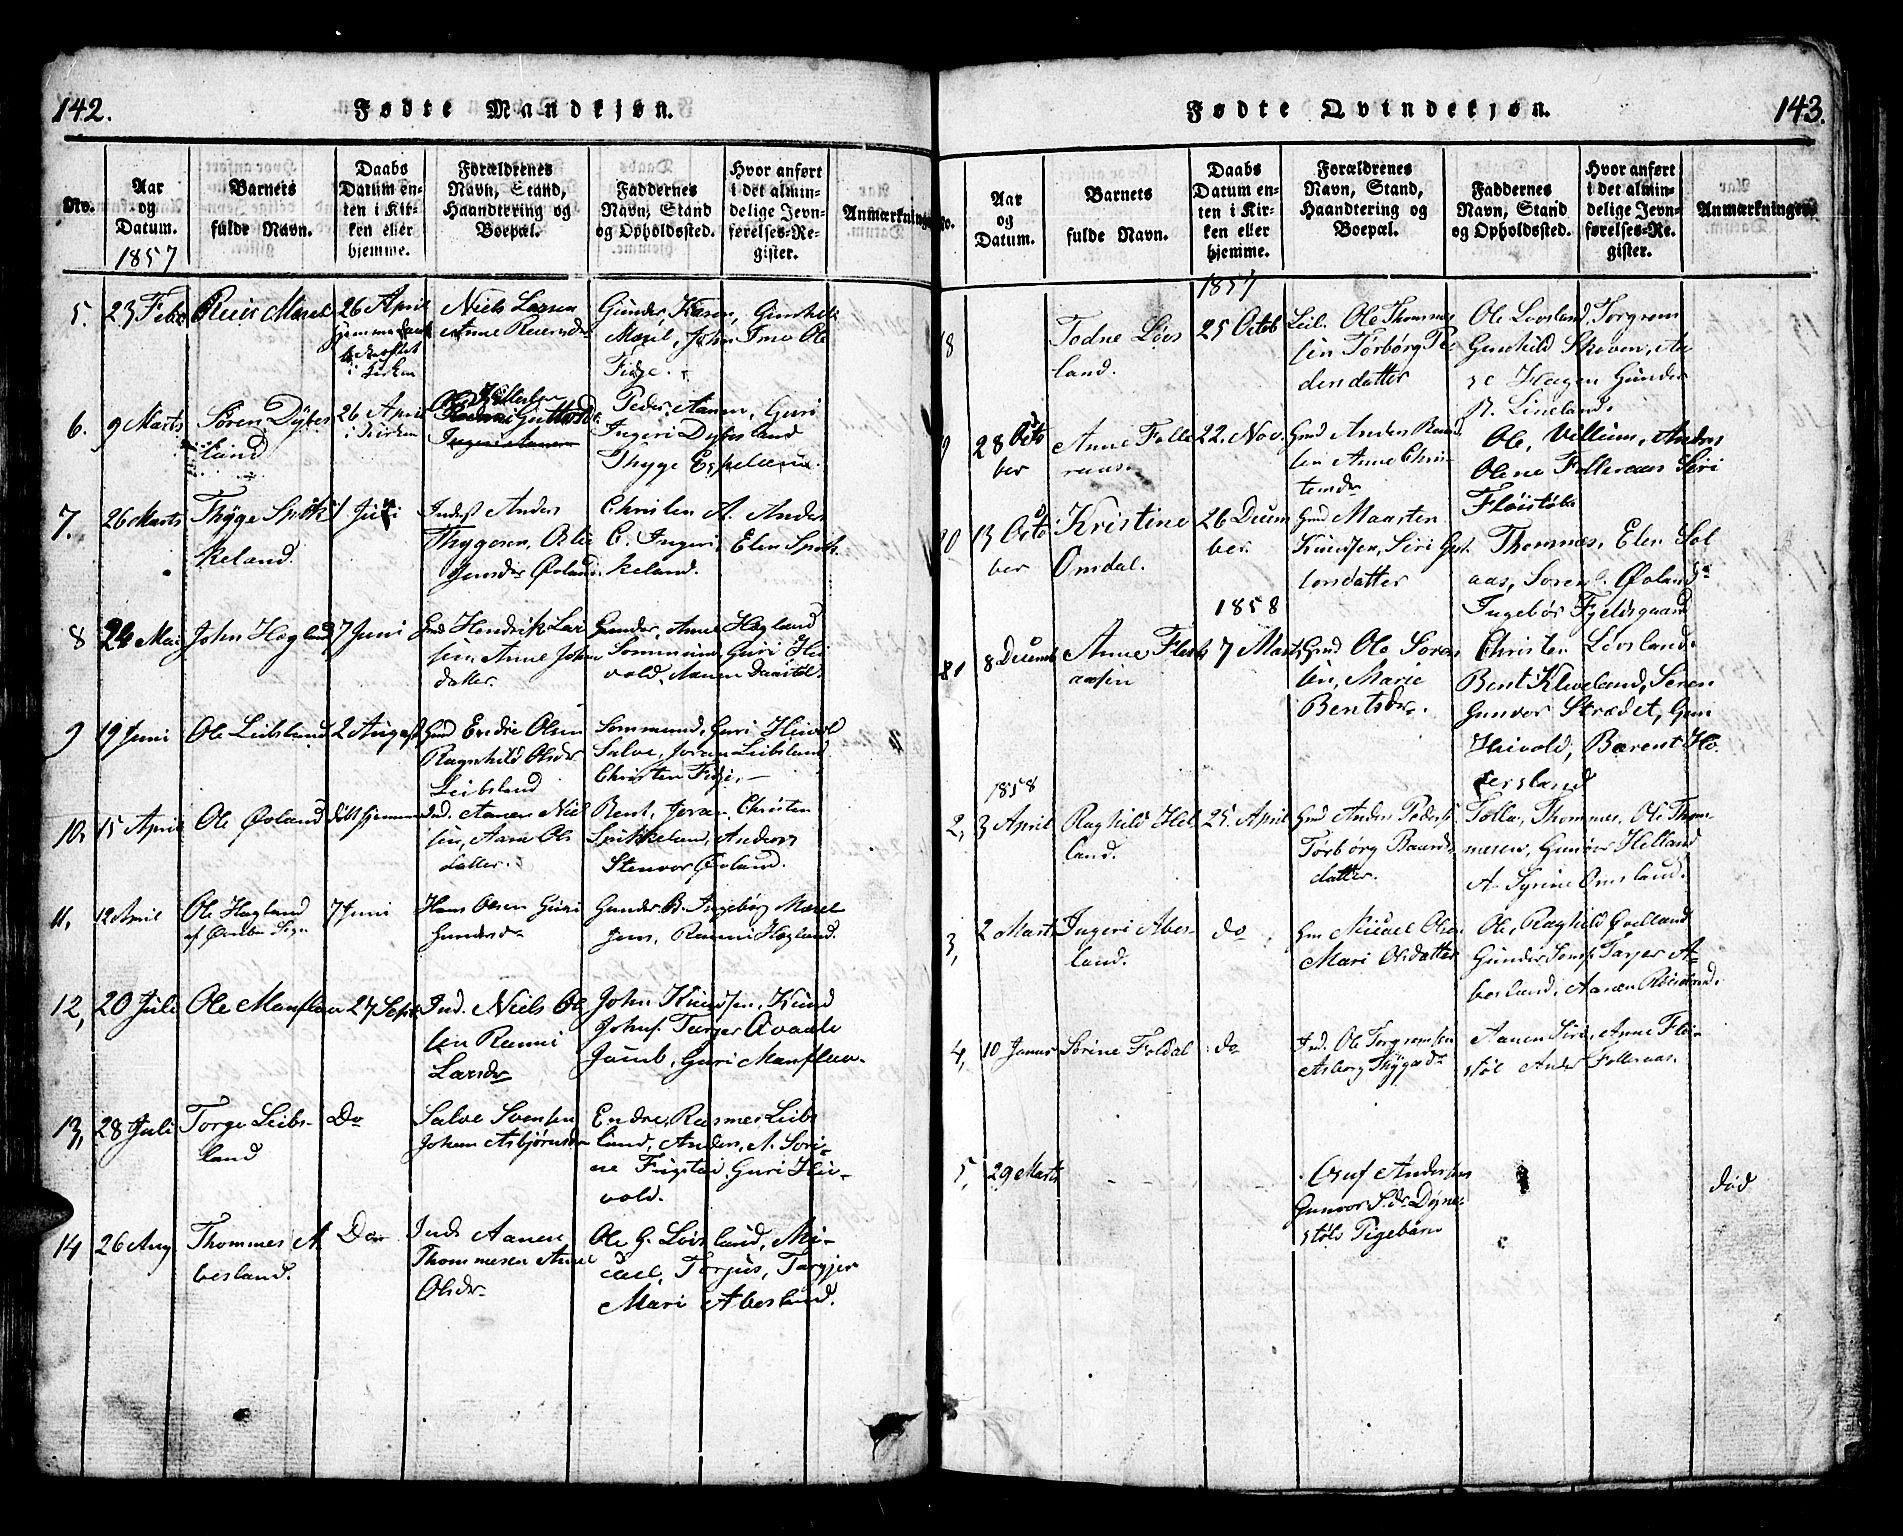 142.
Fødte Mandkjøn.
No.
Aar
og
Datum.
1857
Barnets
fulde Navn.
Daabs
Datum en-
ten i Kir-
ken eller
hjemme.
Forældrenes
Navn, Stand,
Haandtering og
Boepæl.
Faddernes
Navn, Stand
og Opholdssted.
Hvor anført
i det almin-
delige Jevn-
førelses-Re-
gister.
Anmærkninge
5.
23 Feb
Reier Mæsel
26 April
hjemme
i Kirken
Niels Larsen
Anne Reiersdr
Gunder, Karen, Gunhild
Mæsel, John Ole
6.
9 Marts
Søren Dybes
land
26 April
i Kirken
Peder, Aanen, Guri
Ingeri Dybesland
Thyge Eppeland
7.
26 Marts
Thyge Spik
keland.
1 Juni
Inds Anders
Thygesen, Aslie
Jensdr Øvland.
Christen A. Anders
C. Ingeri, Elen Spik
keland.
8
24 Mai
John Hægland
7 Juni
Gmd Hendrik Lar
sen, Anne Johns
datter.
Gunder, Anne Hægland
Sommund, Guri Hei
vold, Aanen
9
19 Juni
Ole Leibsland
2 August
Gmd Endre Olsen
Ragnhild Olsdr
Leibsland
Sommund, Guri Heivold
Salve, Joran Leibsland
Christen
10.
15 April
Ole Øvland
døbt hjemme
Ind. Aanen Niel
sen, Aase Ols
datter.
Bent, Joran, Christen
Spikkeland, Anders
Stenvor Øvland.
11.
12 April
Ole Hægland
af Øvebø Sogn
7 Juni
Hans Olsen Guri
Gundersdr
Gunder B. Ingebørg Mæsel
Jens, Rannei Hægland.
12,
20 Juli
Ole Manflaa
27 Sept
Ind. Niels Ol
sen Rannei
Larsdr
John Knudsen, Knud
Johns. Tarjer Qvaale
Jacob, Guri Manflaa.
13,
28 Juli
Torge Leibs-
land
Do
Salve Svensen
Johanne Asbjørnsdr
Endre, Rasmus Leibs
land, Anders, A. Sori-
ne Guri Hei-
vold.
14
26 Aug
Thommes A
besland.
Do
Inds Aanen
Thommesen Anne
Olsdr
Ole G. Løvsland, Mi-
cael, Torjus, Tarjer
Mari Abesland.
143.
Fødte Qvindekjøn.
No.
Aar
og
Datum.
Barnets
fulde Navn.
Daabs
Datum en-
ten i Kir-
ken eller
hjemme.
Forældrenes
Navn, Stand,
Haandtering og
Boepæl.
Faddernes
Navn, Stand
og Opholdssted.
Hvor anført
i det almin-
delige Jevn-
førelses-Re-
gister.
Anmærkninger
1857
8
Todne Løvs
land.
25 Octob
Leil. Ole Thommes
sen Torborg Pe
dersdatter
Ole Lovsland, Torgrem
Gunhild Skeven,
Haagen Gunder
R. Lineland
9
28 Octo
ber
Anne Folle
raas
22. Nov.
Gmd Anders Baard
sen Anne Chris
tensdr
Ole, Villum, Anders
Olene Folleraas Siri
Fløistøl
10
13 Octo
ber
Kristine
Omdal.
26 Decem
ber.
Gmd Maarten
Knudsen, Siri Gut
tormsdatter
Thommas, Elen Sol
aas, Soren Øvland
Ingebor Fjeldsgaard
1858
8 Decemb
Anne Flerk
aasen
7 Marts
Gmd Ole Soren
sen, Marie
Bentsdr.
Christen Løvsland.
Bent Kleveland, Soren
Gunvor Strædet, Guri
Heivold, Bærent Ho
versland
1858
2,
3 April
Raghild Hel
land.
25. April
Gmd Anders Peders
Torborg Baards
datter.
Tolle, Thommes, Ole Thom
mesen, Gunvor Helland
A. Syrine Omsland.
3,
2 Marts
Ingeri Abes-
land.
do
Gm Micael Olsen
Mari Olsdatter
Ole, Raghild Godland
Gunder Jens, Tarjer A-
besland, Aanen
4,
10 Januar
Sorine Foldal
do
Ind. Ole Torgremsen
Asborg Thygesdr
Aanen Siri, Anne Flöi-
støl Anders Folleraas.
5,
29 Marts
Oluf Andersen
Gunvor S.dr Dynne
støl Pigebarn
død